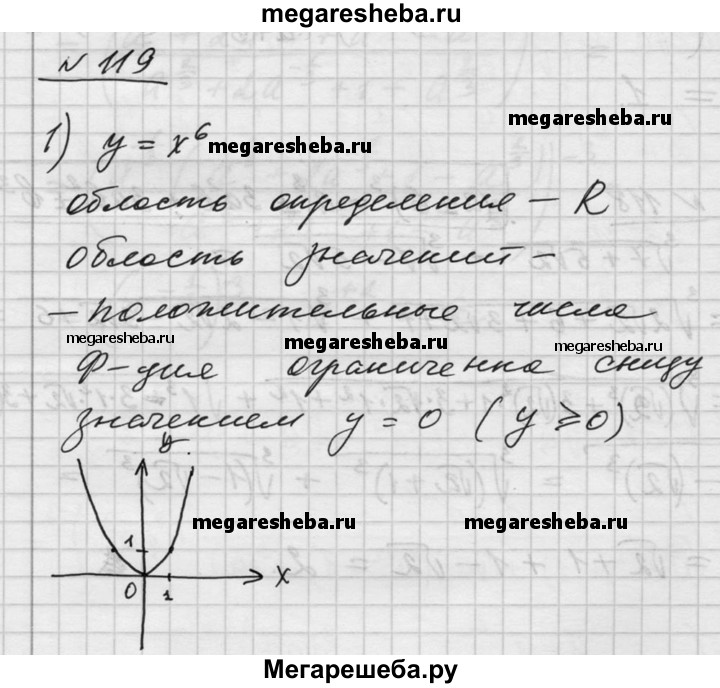 megaresheba.ru
N 119
1) y = x⁶ megaresheba.ru
megaresheba.ru
область определения – R
область значений –
– положительные числа
megaresheba.ru megaresheba.ru megaresheba.ru
Ф-ция ограниченна снизу
значением y = 0 (y ⩾ 0)
y
1
megaresheba.ru megaresheba.ru
0 1 x
Мегарешеба.ру